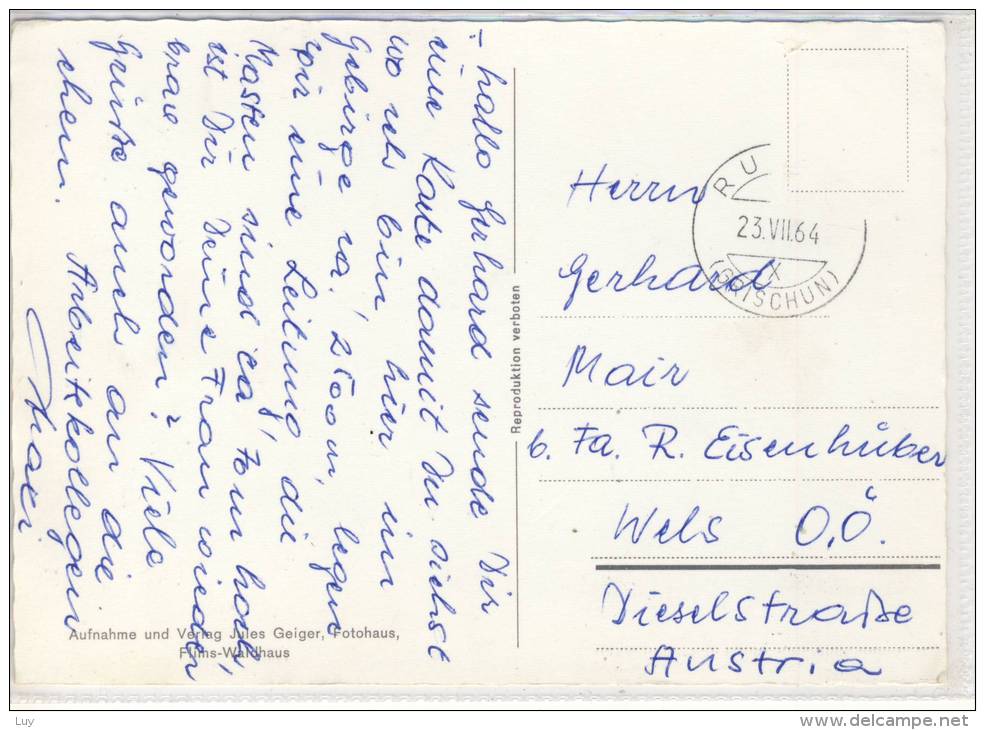 – hallo Gerhard sende Dir
eine Karte damit Du siehst
wo ich bin hier im
Gebirge ca, 2500m, legen
wir eine Leitung die
Masten sind ca, 70m hoch,
ist Dir Deine Frau wieder
brav geworden? Viele
Grüße auch an die
Arbeitskollegen
Reproduktion verboten
Aufnahme und Verlag Jules Geiger, Fotohaus,
Flims-Waldhaus
RU
23.VII.64
X
(GRISCHUN)
Herrn
Gerhard
Mair
b. Fa. R. Eisenhuber
Wels O,Ö.
Dieselstraße
Austria
Luy
www.delcampe.net